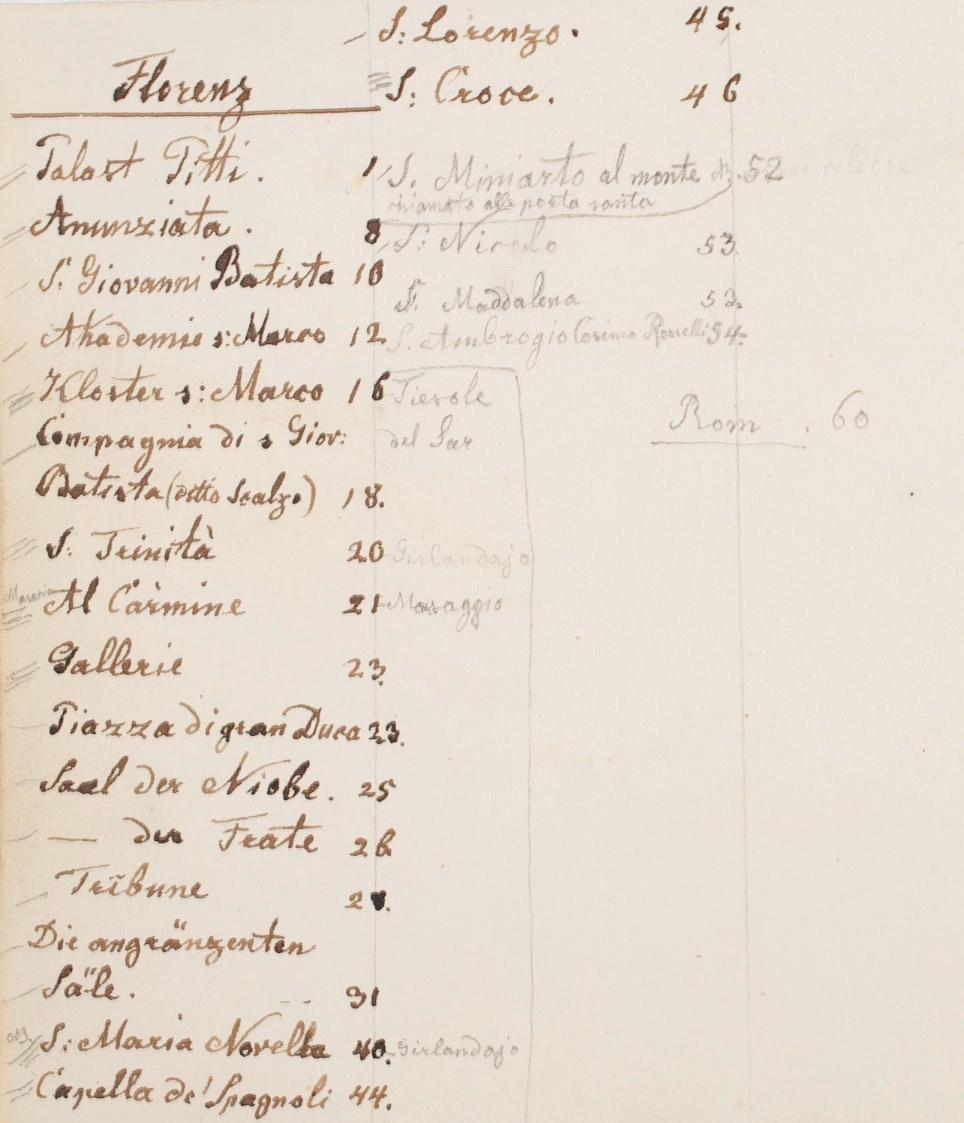 Florenz
Palast Pitti. 1
Anunziata. 8
S. Giovanni Batista 10
Akademie s: Marco 12
Kloster s: Marco 16
Compagnia di s Giov:
Batista (detto Scalzo) 18.
S: Trinità 20 Girlandajo
Al Carmine 21 Masaggio
Gallerie 23.
Piazza di gran Duca 23.
Saal der Niobe. 25
— der Frate 26
Tribune
Die angränzenten
Säle. 31
S: Maria Novella 40. Girlandajo
Capella de' Spagnoli 44.
S: Lorenzo. 45.
S: Croce. 46
S. Miniarto al monte 52
chiamato alle porta santa
S: Nicolo 53
S. Maddalena 53.
S. Ambrogio Cosimo Rosselli 54.
Fiesole
del Sar
Rom. 60